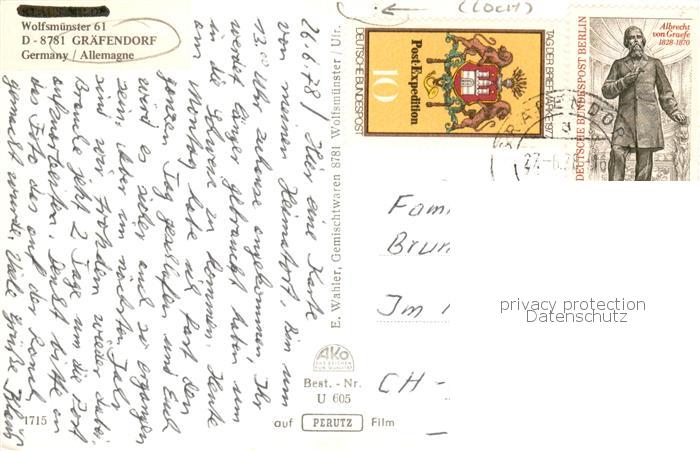 Wolfsmünster 61
D - 8781 GRÄFENDORF
Germany / Allemagne
26.6.78 / Hier eine Karte
von meinem Heimatort. Bin um
13.00 Uhr zuhause angekommen. Ihr
werdet länger gebraucht haben, um
in die Schweiz zu kommen. Heute
am Montag habe ich fast den
ganzen Tag geschlafen und Euch
wird es sicher auch so ergangen
sein. Aber im nächsten Jahr
sind wir trotzdem wieder dabei.
Brauche jetzt 2 Tage um die Post
aufzuarbeiten. Denkt bitte an
das Foto das auf der Ranch
gemacht wurde. Viele Grüße Klaus
1715
E. Wahler, Gemischtwaren 8781 Wolfsmünster / Ufr.
AKO
Best. - Nr.
U 605
auf PERUTZ Film
(LOCH)
TAG DER BRIEFMARKE 197
DEUTSCHE BUNDESPOST
Post Expedition
10
Albrecht
von Graefe
1828-1870
DEUTSCHE BUNDESPOST BERLIN
27.-6.7
Fam
Brun
Im
CH -
privacy protection
Datenschutz